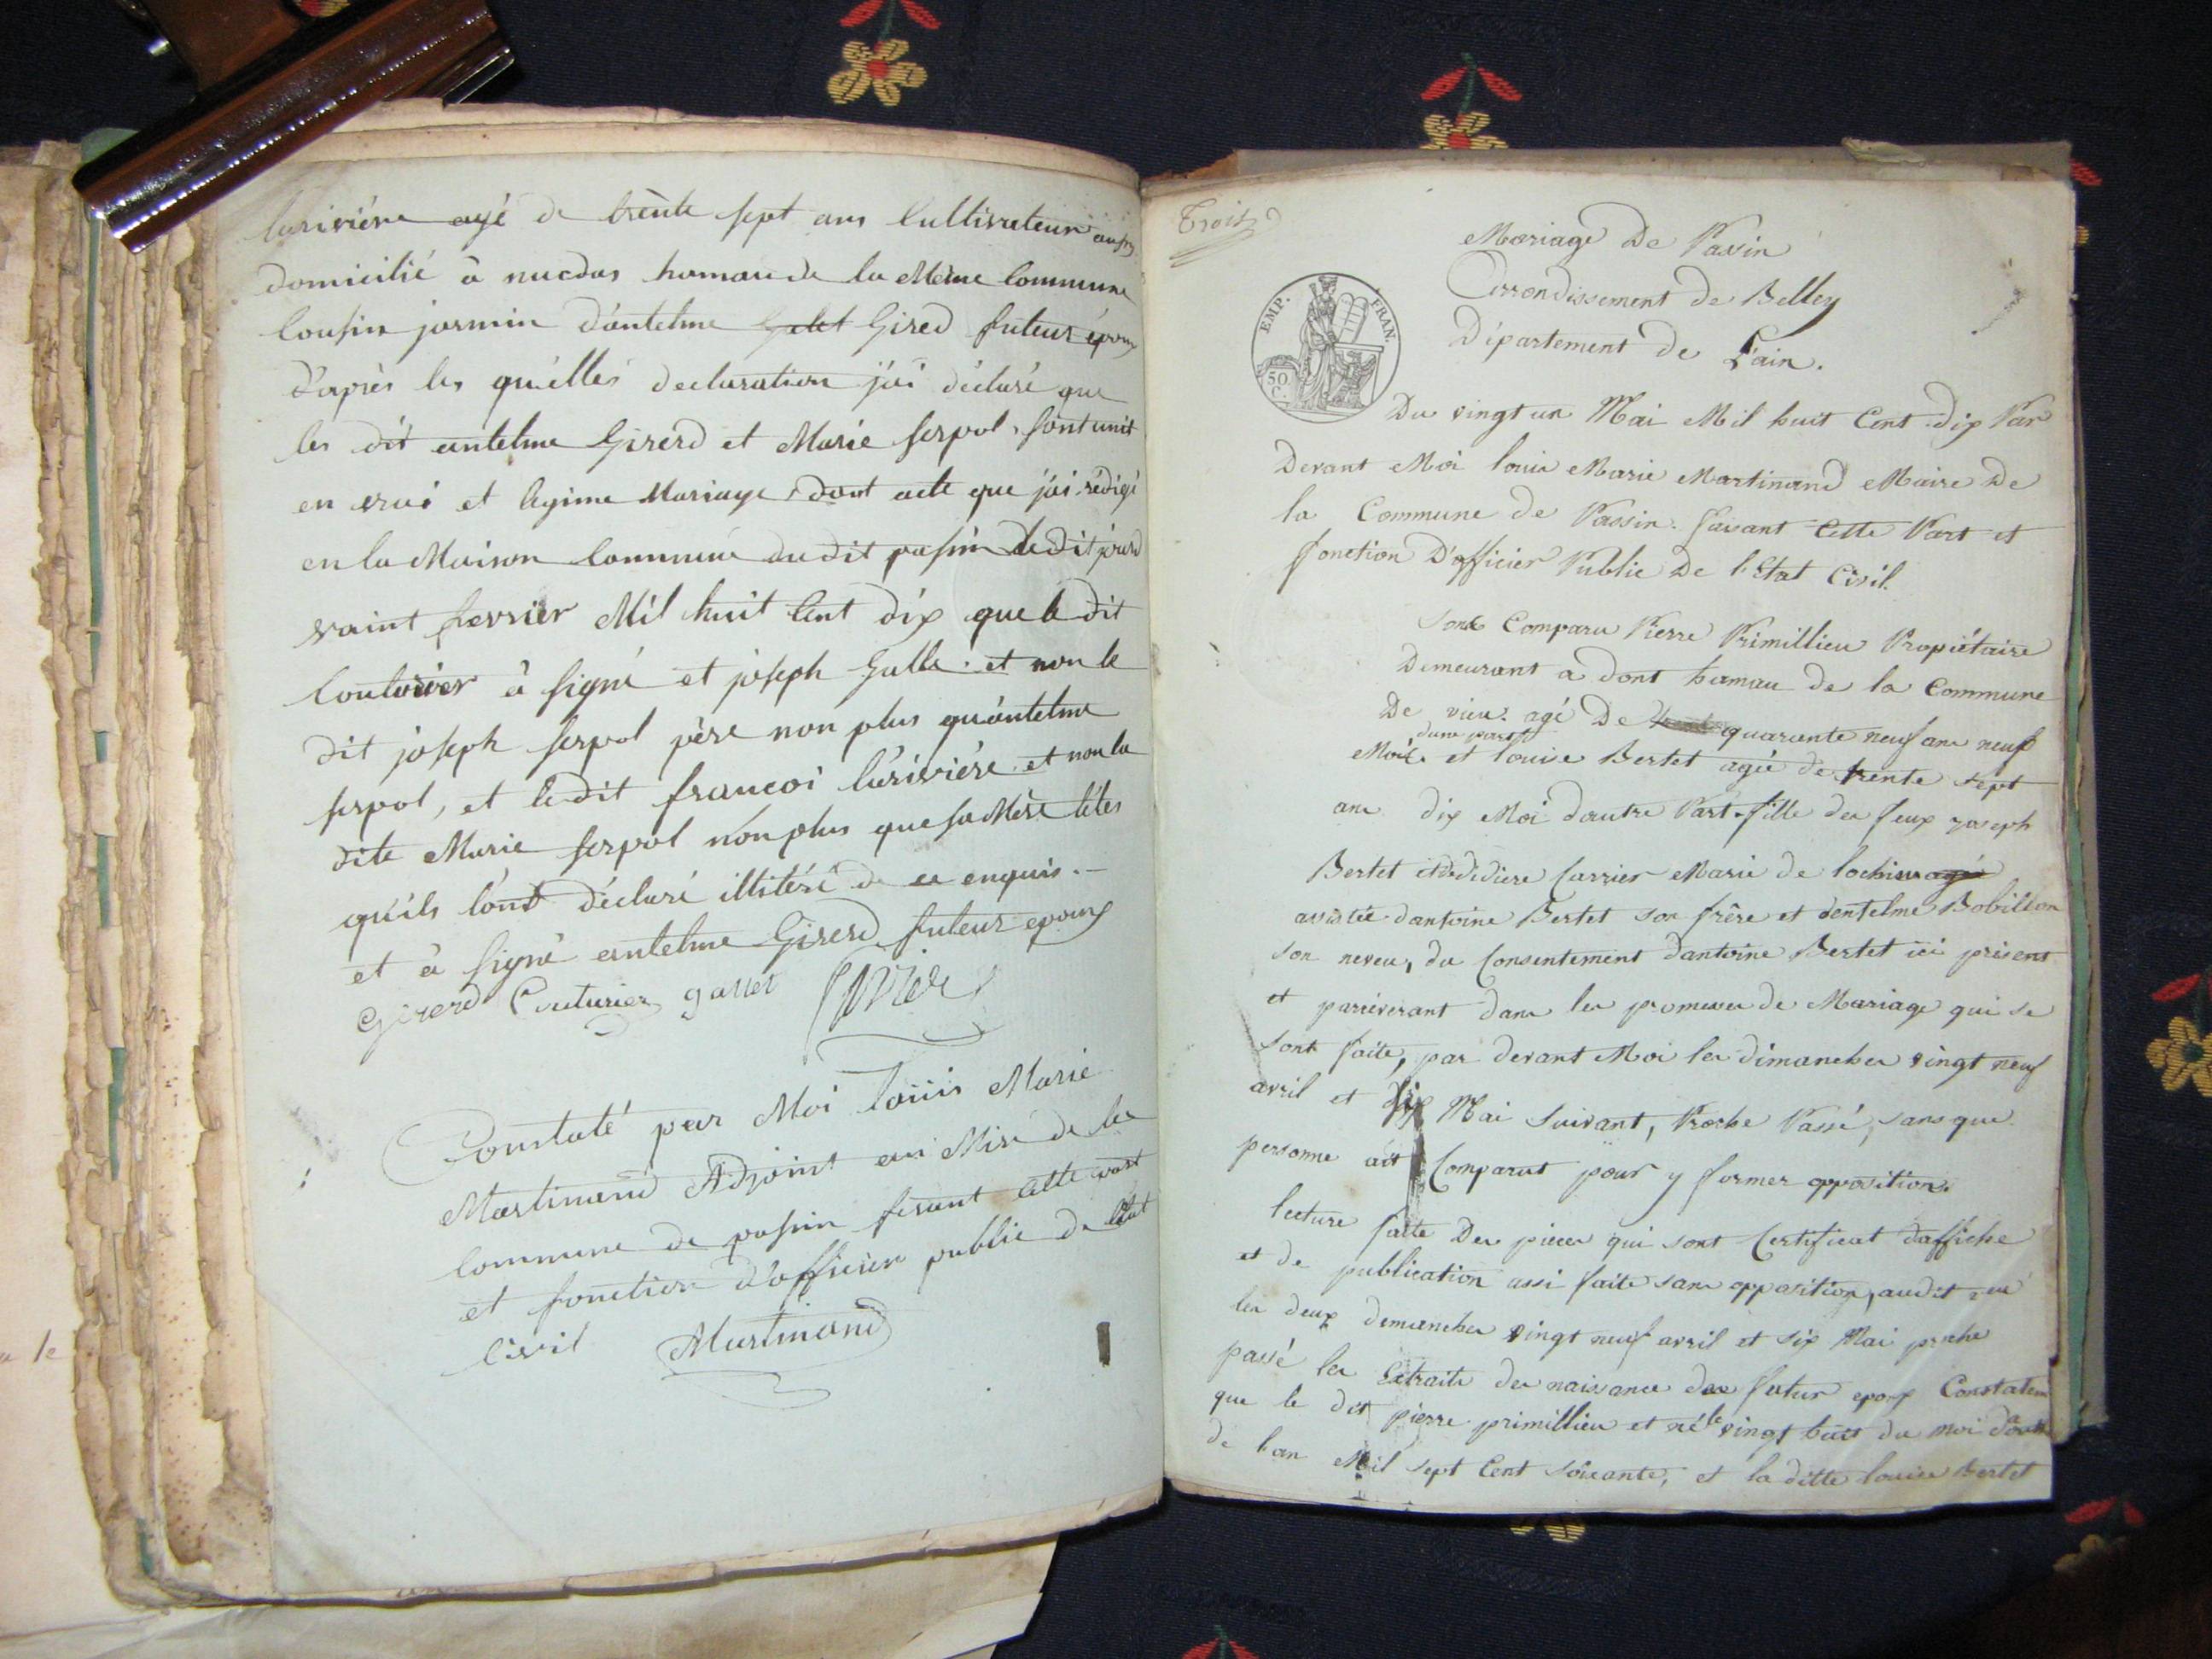 lariviére agé de trènte sept ans Cultivateur aussy
domicilié à hamau de la Même Commune
Cousin jormin d'antelme Galet Gired futeur époux
d'après les qu'élles declaration j'ai déclaré que
les dit antelme Girerd et Marie serpol, sont unit
en vrai et legime Mariage, dont acte que j'ai rédigé
en la Maison Commune du dit passin ledit jourd
vaint fevrier Mil huit Cent dix que le dit
Couturier à signé et joseph Galle et non le
dit joseph serpol père non plus qu'antelme
serpol, et ledit francoi lariviére et non la
dite Marie serpol non plus que sa Mère
qu'ils l'ont déclaré illitéré de ce enquis.
et à signé antelme Girerd futeur epoux
Girerd Couturier gallet
Constaté par Moi louis Marie
Martinand Adjoint au Mire de la
Commune de passin fesant cette part
et fonction d'officier public de l'état
Civil Martinand
Trois
Mariage De Passin
Arrondissement de Belley
Département de L'ain.
EMP. FRAN.
50 C.
Du vingt un Mai Mil huit Cent dix Par
Devant Moi louis Marie Martinand Maire De
la Commune de Passin. faisant Cette Part et
fonction D'officier Public De l'Etat Civil.
sont Comparu Pierre Primillieu Propiétaire
Demeurant a dont hamau de la Commune
De vieu. agé De quarante neuf ans neuf
d'une part
Mois. et louise Bertet agée de trente sept
ans dix Moi d'autre Part. fille des feux joseph
Bertet Carrier Marie de lochieu agée
assistée d'antoine Bertet son frère et d'entelme Bobillon
son neveu, du Consentement d'antoine Bertet ici présent
et persiverant dans les promesses de Mariage qui se
sont faite, par devant Moi les dimanches vingt neuf
avril et six Mai suivant, Proche Passé, sans que
personne ait Comparut pour y former opposition.
lecture faite Des pieces qui sont Certificat d'affiche
et de publication assi faite sans opposition, audit
les deux demanches vingt neuf avril et six Mai proche
passé les Extraits des naissances des futur epoux Constatent
que le dit pierre primillieu et né le vingt huit du moi d'aoutt
de l'an Mil sept Cent soixante, et la ditte louise Bertet